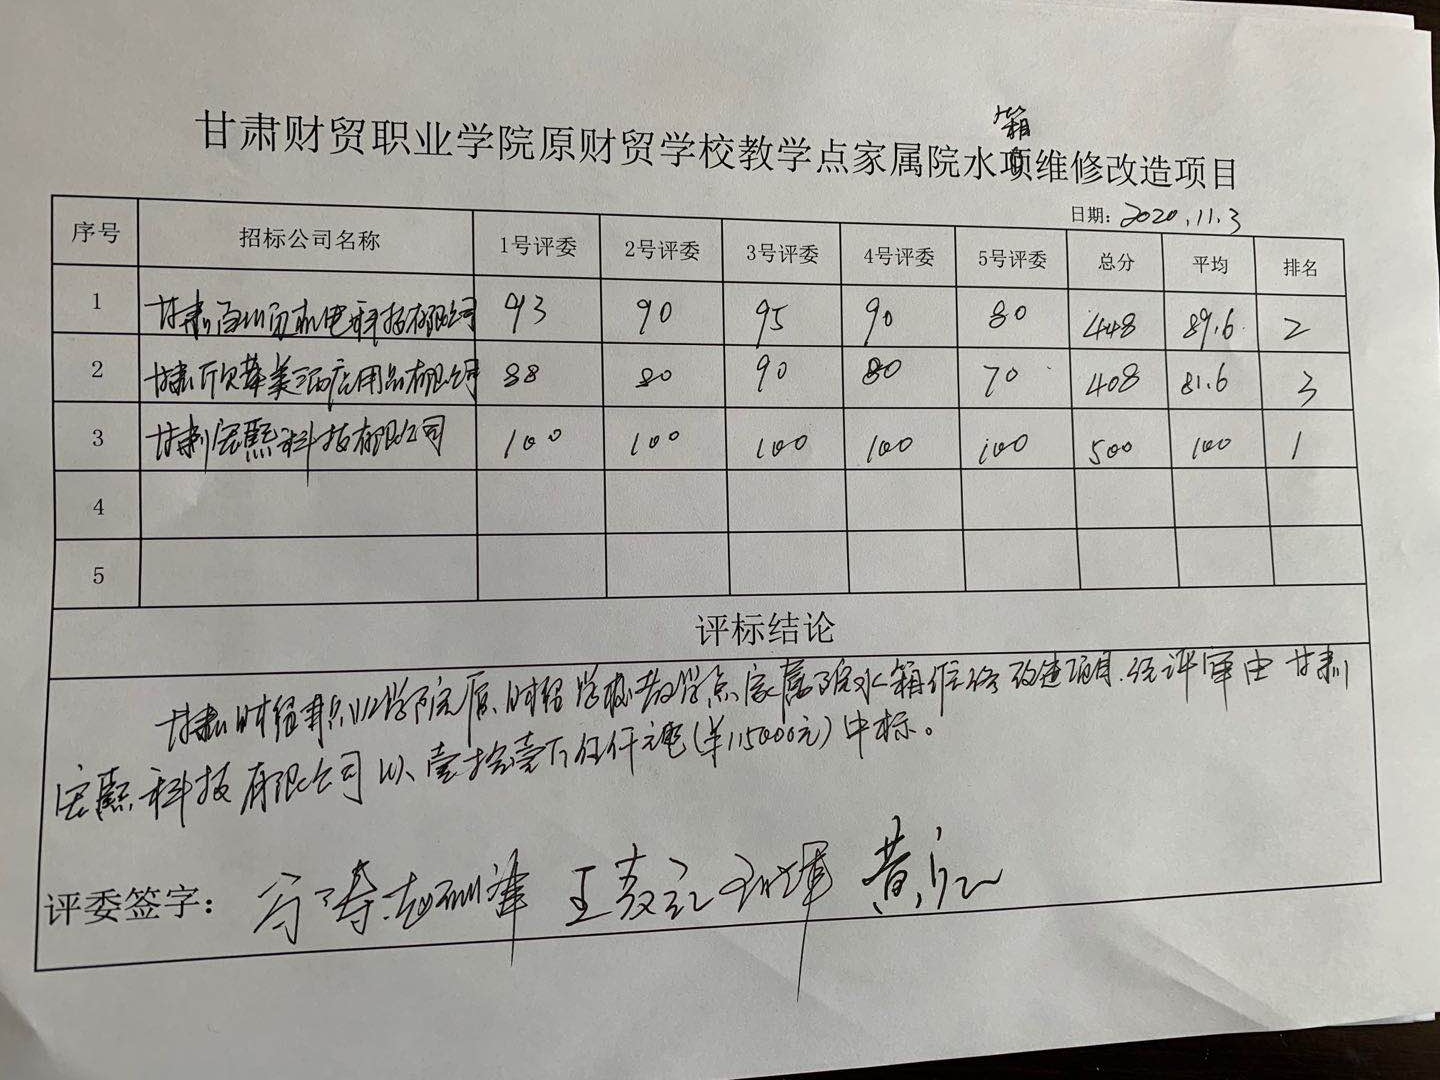 甘肃财贸职业学院原财贸学校教学点家属院水箱维修改造项目
日期：2020.11.3
序号 招标公司名称 1号评委 2号评委 3号评委 4号评委 5号评委 总分 平均 排名
1 甘肃百川实机电科技有限公司 93 90 95 90 80 448 89.6 2
2 甘肃欣华美酒店用品有限公司 88 80 90 80 70 408 81.6 3
3 甘肃宏熙科技有限公司 100 100 100 100 100 500 100 1
4
5
评标结论
甘肃财贸职业学院原财贸学校教学点家属院水箱维修改造项目，经评审由甘肃
宏熙科技有限公司以壹拾壹万伍仟元（¥115000元）中标。
评委签字：